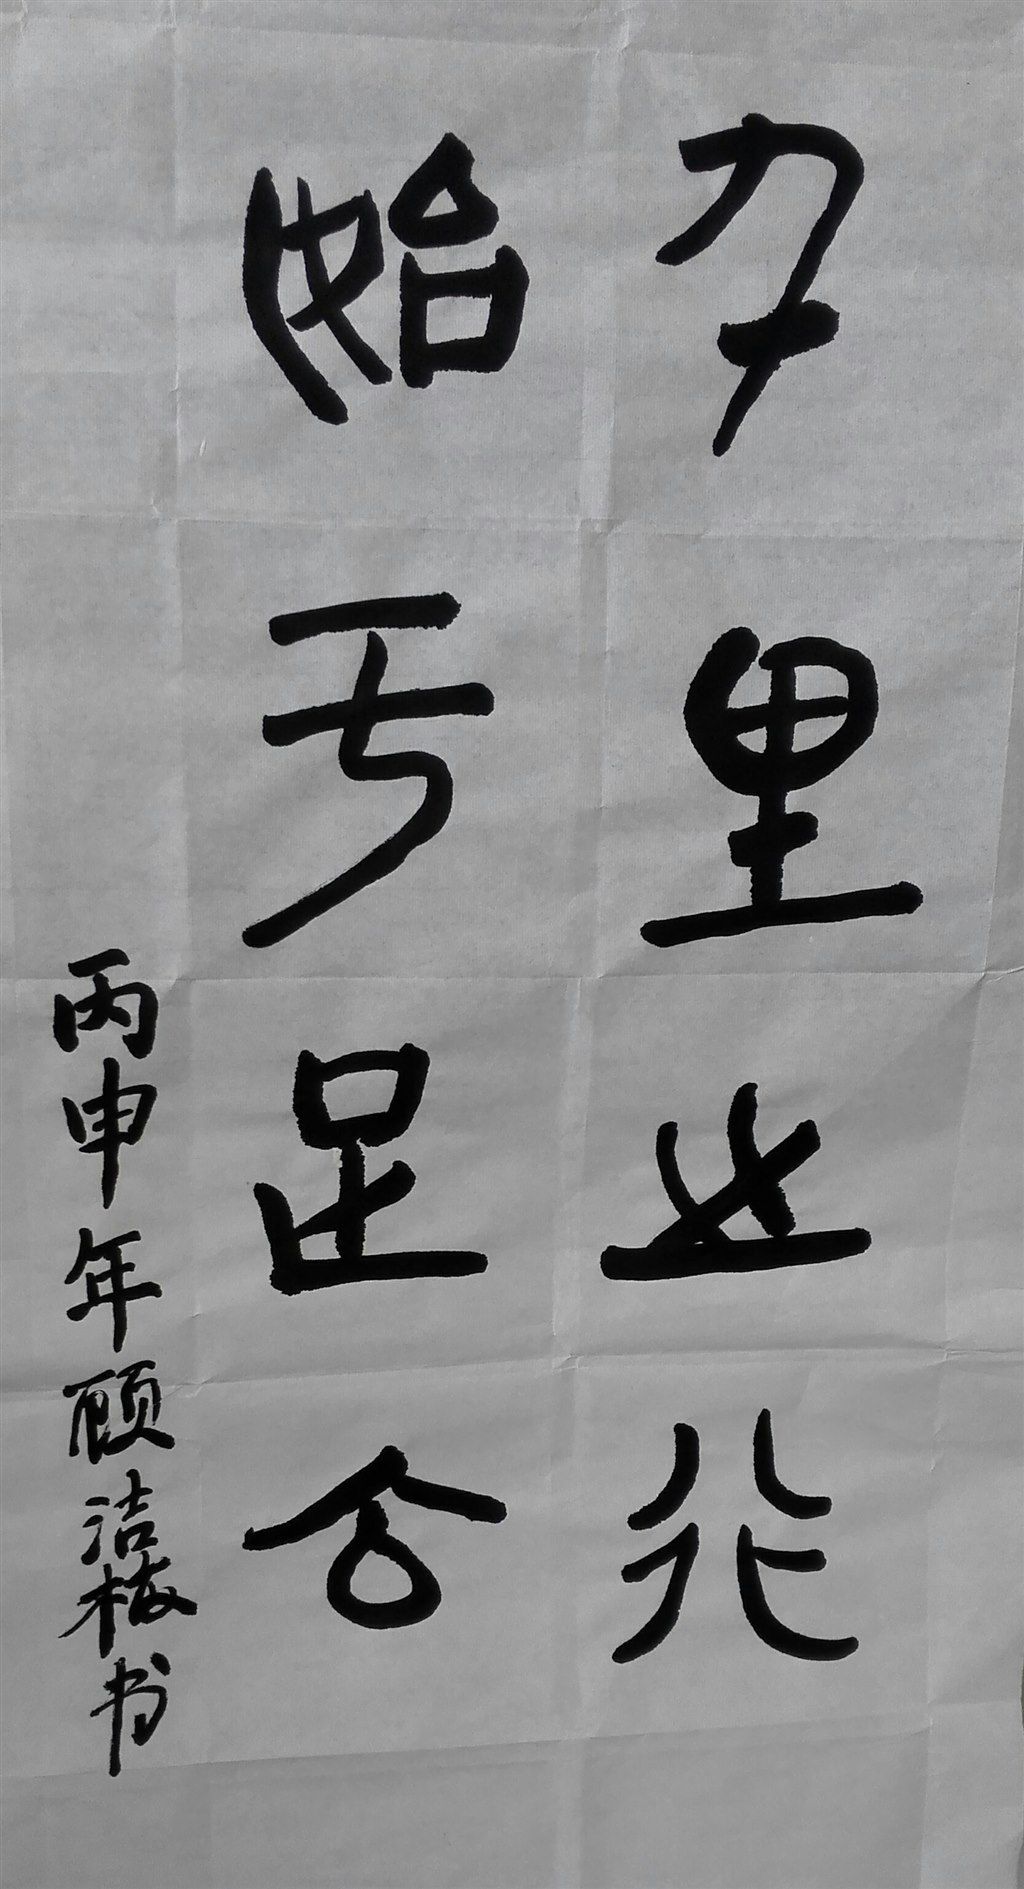 千里之行
始于足
丙申年顾洁梅书